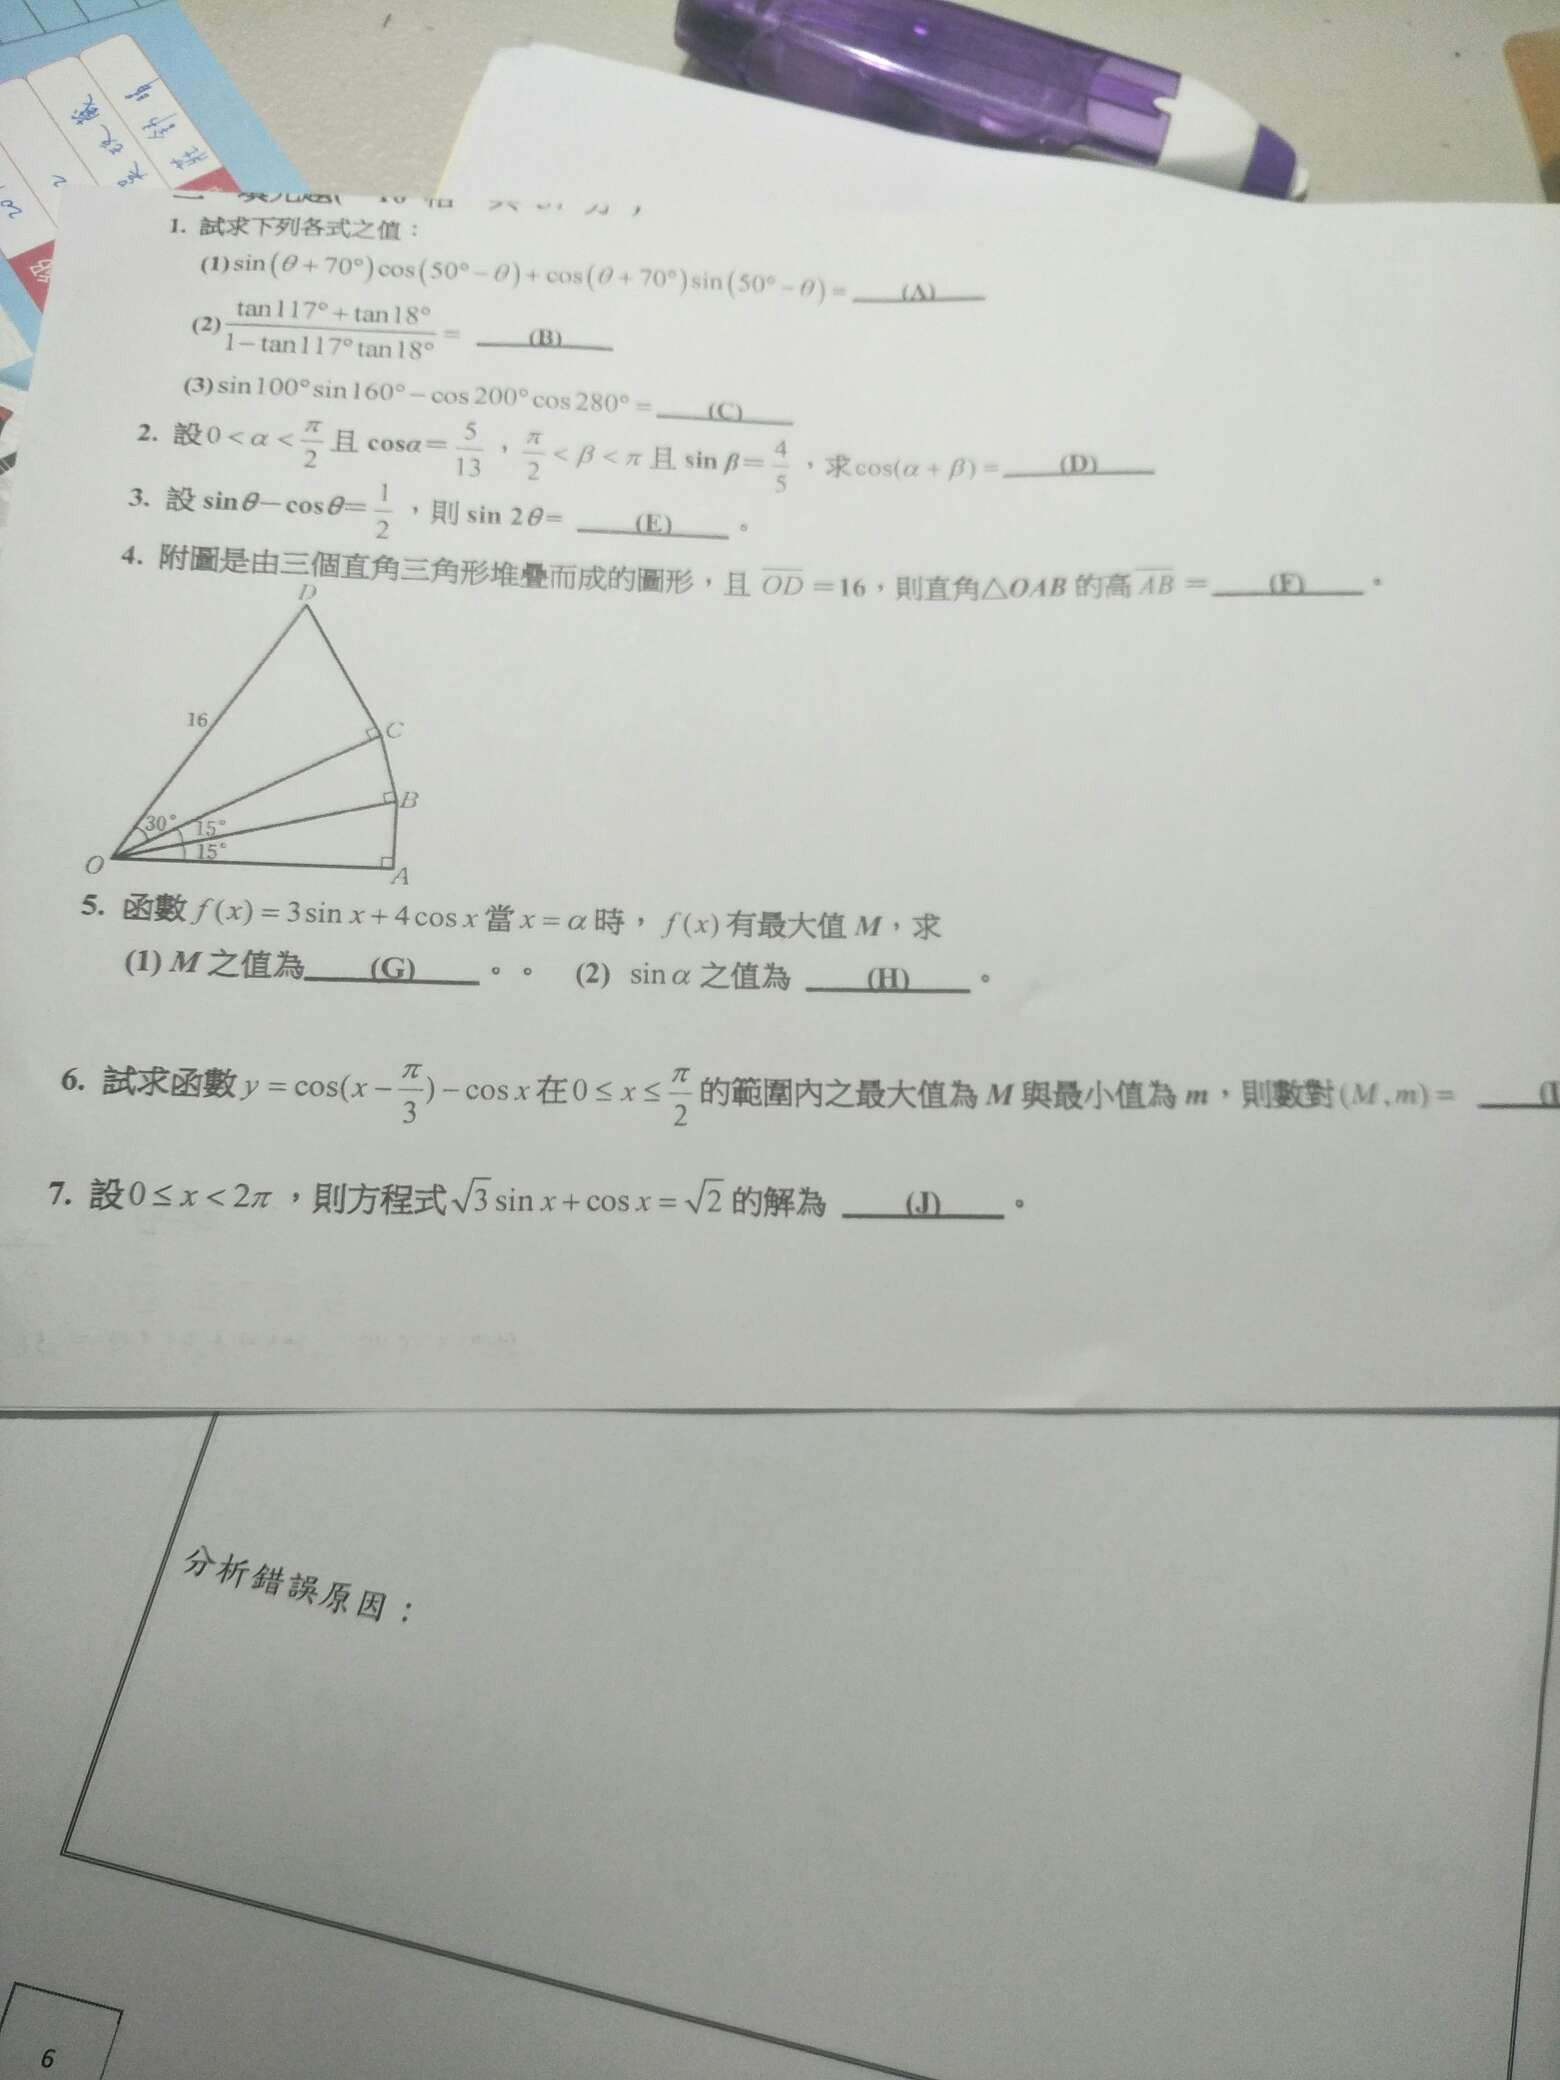 1. 試求下列各式之值：
(1) sin(θ+70°)cos(50°−θ)+cos(θ+70°)sin(50°−θ)= (A)
(2) tan117°+tan18° / 1−tan117°tan18° = (B)
(3) sin100°sin160°−cos200°cos280°= (C)
2. 設0<α<π/2 且 cosα=5/13，π/2<β<π 且 sin β=4/5，求cos(α+β)= (D)
3. 設 sinθ−cosθ=1/2，則 sin 2θ= (E) 。
4. 附圖是由三個直角三角形堆疊而成的圖形，且 OD=16，則直角△OAB 的高 AB = (F) 。
D
16
C
B
30° 15°
15°
O
A
5. 函數 f(x)=3sin x+4cos x 當 x=α 時，f(x) 有最大值 M，求
(1) M 之值為 (G) 。。 (2) sinα 之值為 (H) 。
6. 試求函數 y=cos(x−π/3)−cos x 在 0≤x≤π/2 的範圍內之最大值為 M 與最小值為 m，則數對(M,m)=
7. 設0≤x<2π，則方程式√3 sin x+cos x=√2 的解為 (J) 。
分析錯誤原因：
6